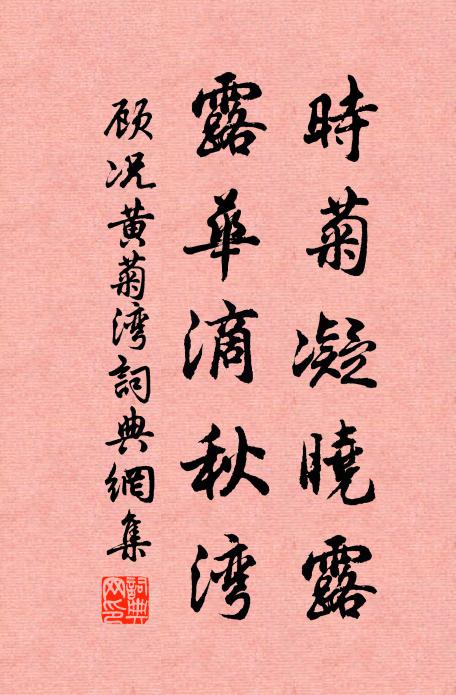 時菊凝曉露
露華滴秋湾
顾况黄菊湾詞典網集
詞典網印